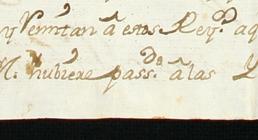 y Vermitan a estos Rey.s aq
N. hubiere pass.do a las Y